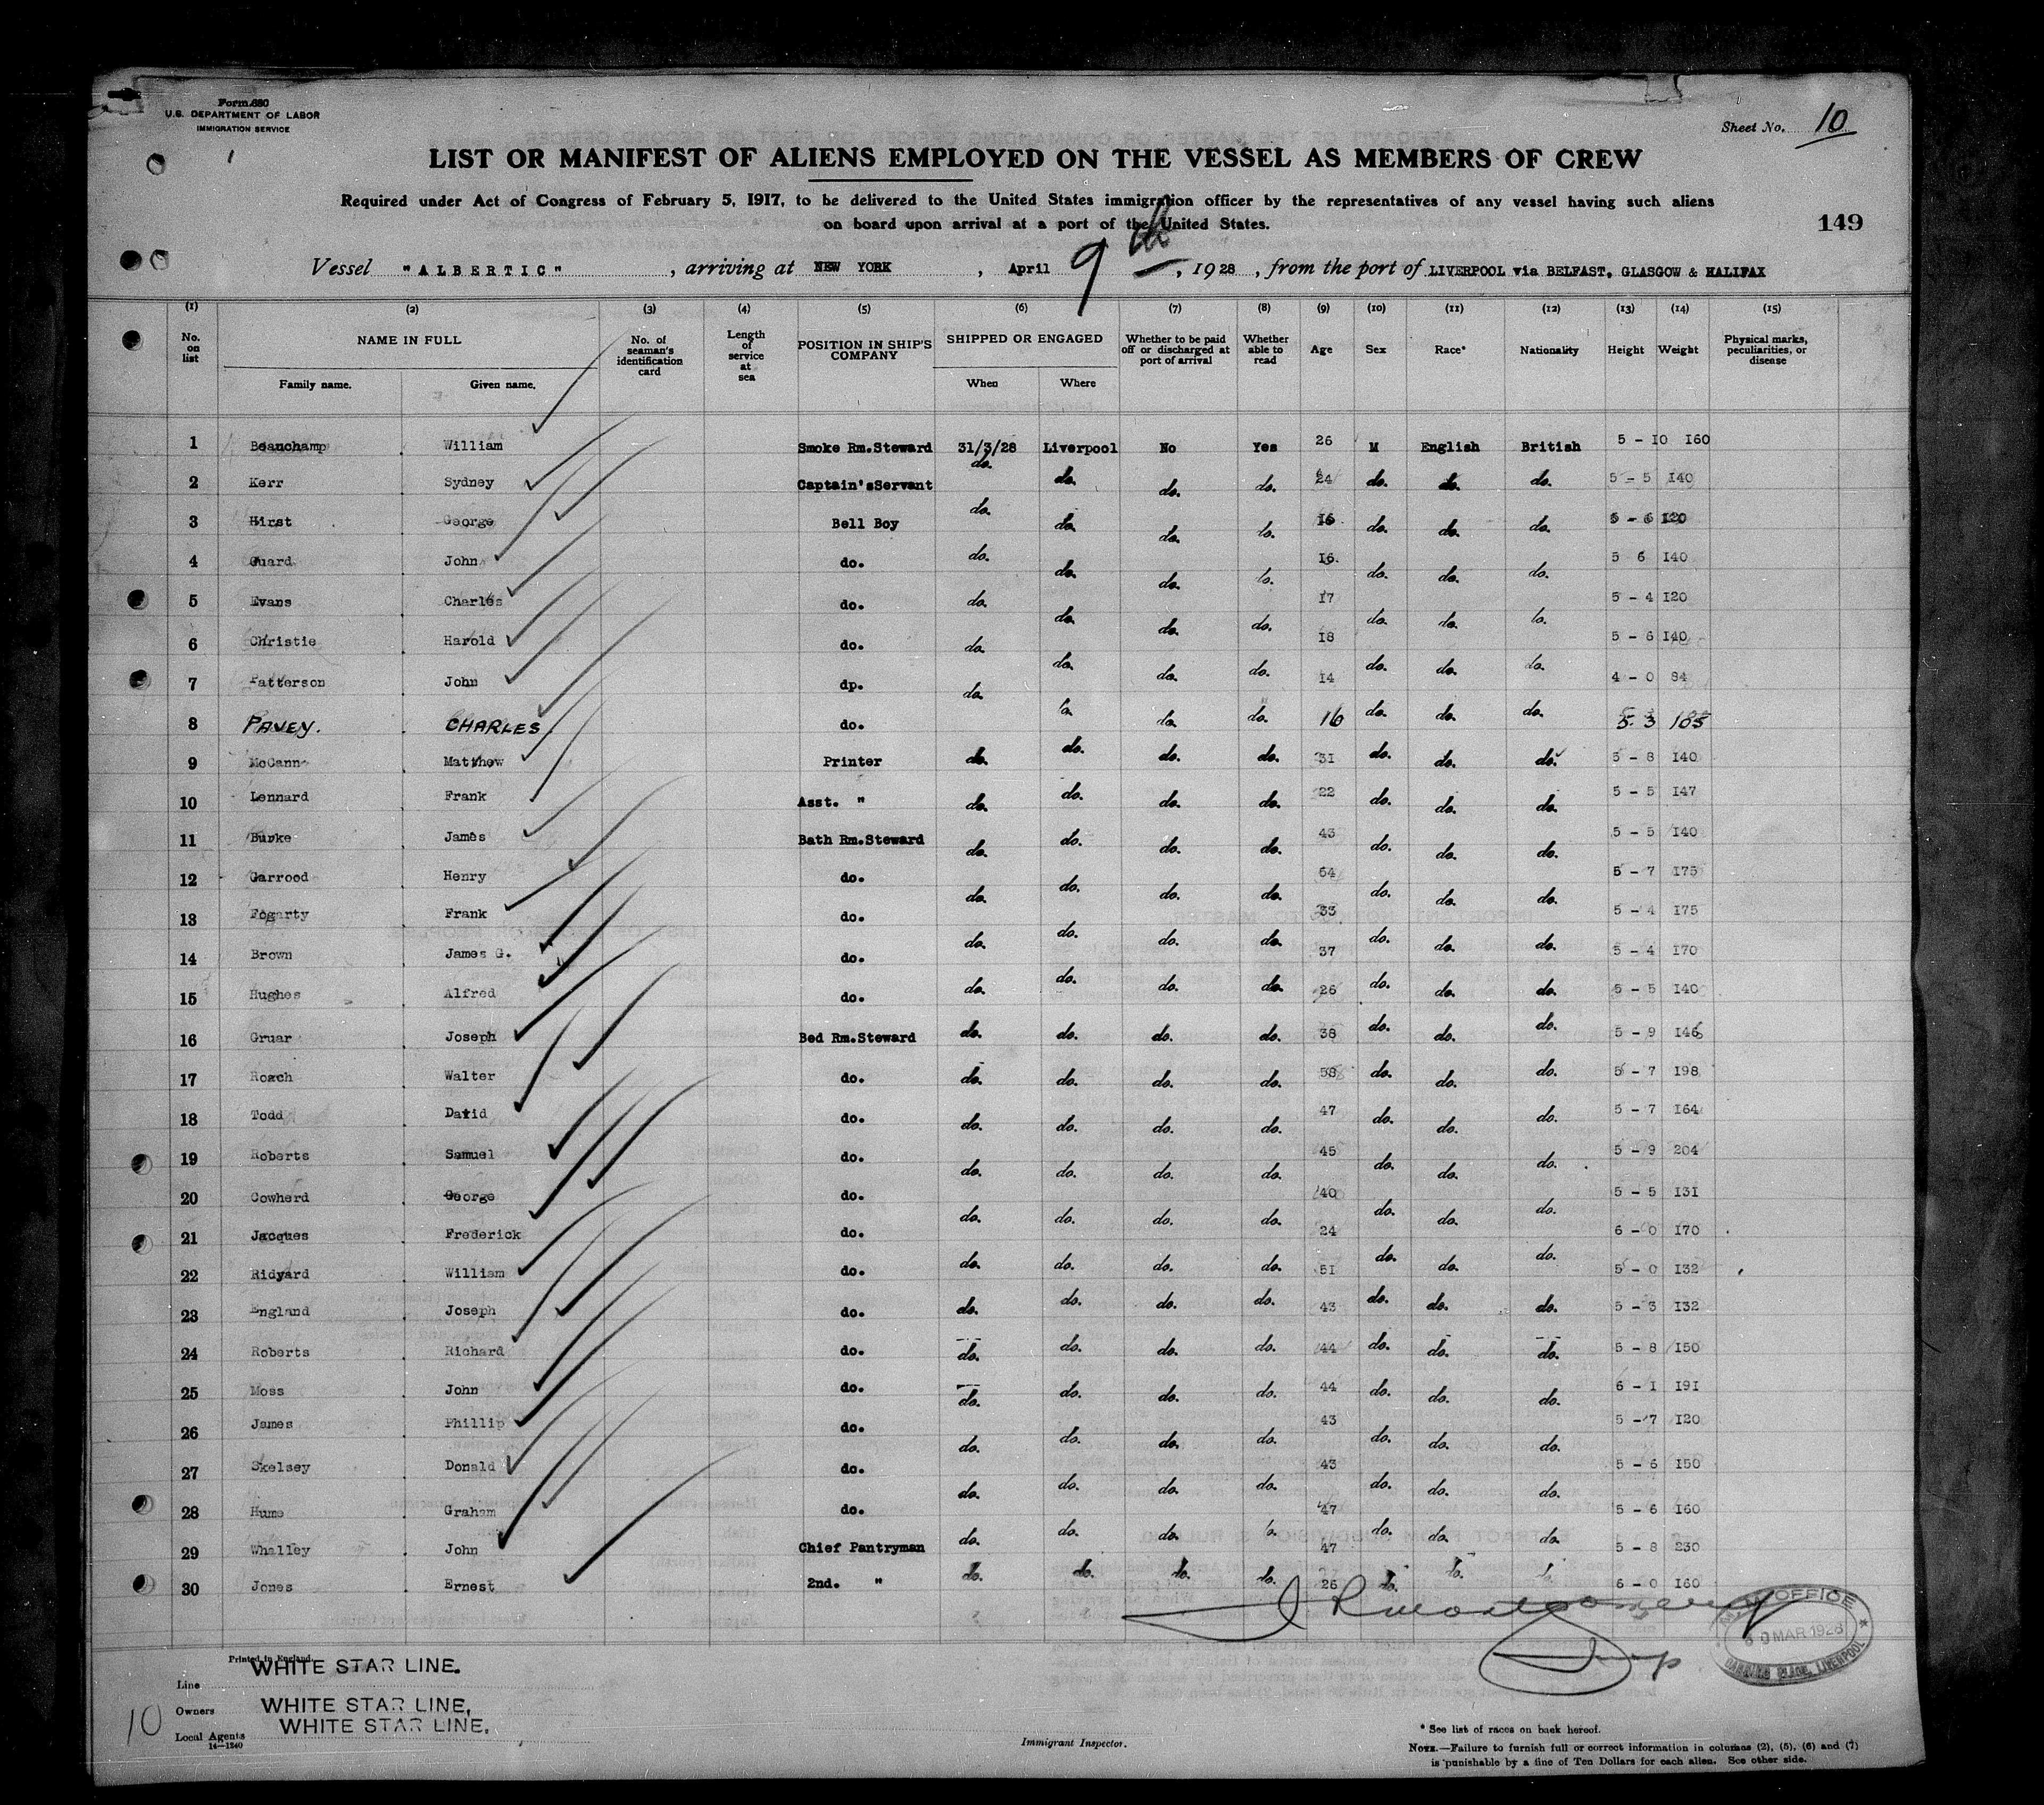 Form 680
U.S. DEPARTMENT OF LABOR
IMMIGRATION SERVICE
Sheet No. 10
LIST OR MANIFEST OF ALIENS EMPLOYED ON THE VESSEL AS MEMBERS OF CREW
Required under Act of Congress of February 5, 1917, to be delivered to the United States immigration officer by the representatives of any vessel having such aliens
on board upon arrival at a port of the United States.
149
Vessel "ALBERTIC" , arriving at NEW YORK , April 9th , 1928 , from the port of LIVERPOOL via BELFAST, GLASGOW & HALIFAX
(1) (2) (3) (4) (5) (6) (7) (8) (9) (10) (11) (12) (13) (14) (15)
No. on list NAME IN FULL Family name. Given name. No. of seaman's identification card Length of service at sea POSITION IN SHIP'S COMPANY SHIPPED OR ENGAGED When Where Whether to be paid off or discharged at port of arrival Whether able to read Age Sex Race* Nationality Height Weight Physical marks, peculiarities, or disease
1 Beauchamp William Smoke Rm.Steward 31/3/28 Liverpool No Yes 26 M English British 5 - 10 160
2 Kerr Sydney Captain'sServant do. do. do. do. 24 do. do. do. 5 - 5 140
3 Hirst George Bell Boy do. do. do. do. 16 do. do. do. 5 - 6 120
4 Guard John do. do. do. do. do. 16 do. do. do. 5 6 140
5 Evans Charles do. do. do. do. do. 17 do. do. do. 5 - 4 120
6 Christie Harold do. do. do. do. do. 18 do. do. do. 5 - 6 140
7 Patterson John dp. do. do. do. do. 14 do. do. do. 4 - 0 84
8 PAVEY. CHARLES. do. do. do. do. 16 do. do. do. 5. 3 105
9 McCann Matthew Printer do. do. do. do. 31 do. do. do. 5 - 8 140
10 Lennard Frank Asst. " do. do. do. do. 22 do. do. do. 5 - 5 147
11 Burke James Bath Rm.Steward do. do. do. do. 43 do. do. do. 5 - 5 140
12 Garrood Henry do. do. do. do. do. 54 do. do. do. 5 - 7 175
13 Fogarty Frank do. do. do. do. do. 33 do. do. do. 5 - 4 175
14 Brown James G. do. do. do. do. do. 37 do. do. do. 5 - 4 170
15 Hughes Alfred do. do. do. do. do. 26 do. do. do. 5 - 5 140
16 Gruar Joseph Bed Rm.Steward do. do. do. do. 38 do. do. do. 5 - 9 146
17 Roach Walter do. do. do. do. do. do. do. do. 5 - 7 198
18 Todd David do. do. do. do. do. 47 do. do. do. 5 - 7 164
19 Roberts Samuel do. do. do. do. do. 45 do. do. do. 5 - 9 204
20 Cowherd George do. do. do. do. do. 40 do. do. do. 5 - 5 131
21 Jacques Frederick do. do. do. do. do. 24 do. do. do. 6 - 0 170
22 Ridyard William do. do. do. do. do. 51 do. do. do. 5 - 0 132
23 England Joseph do. do. do. do. do. 43 do. do. do. 5 - 3 132
24 Roberts Richard do. do. do. do. do. 44 do. do. do. 5 - 8 150
25 Moss John do. do. do. do. do. 44 do. do. do. 6 - 1 191
26 James Phillip do. do. do. do. do. 43 do. do. do. 5 - 7 120
27 Skelsey Donald do. do. do. do. do. 43 do. do. do. 5 - 6 150
28 Hume Graham do. do. do. do. do. 47 do. do. do. 5 - 6 160
29 Whalley John Chief Pantryman do. do. do. do. 47 do. do. do. 5 - 8 230
30 Jones Ernest 2nd. " do. do. do. do. 26 do. do. do. 6 - 0 160
Printed in England.
Line WHITE STAR LINE.
Owners WHITE STAR LINE,
Local Agents WHITE STAR LINE.
14—1240
10
Immigrant Inspector.
OFFICE
MAR 1928
LIVERPOOL
* See list of races on back hereof.
NOTE.—Failure to furnish full or correct information in columns (2), (5), (6) and (7)
is punishable by a fine of Ten Dollars for each alien. See other side.